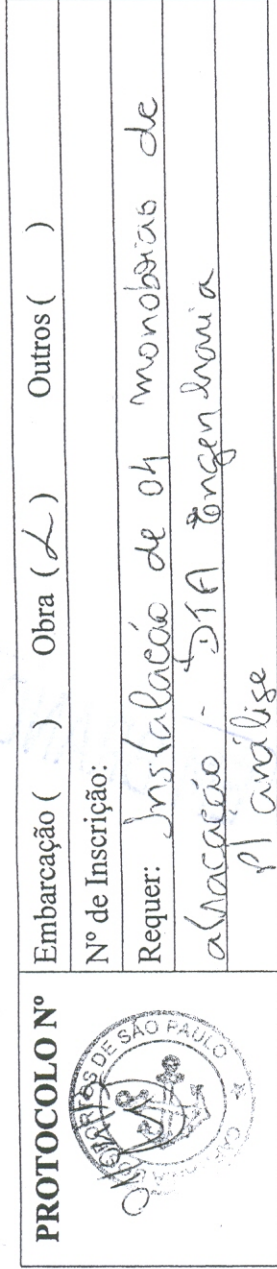 PROTOCOLO Nº
Embarcação ( ) Obra ( ) Outros ( )
Nº de Inscrição:
Requer: Instalação de 04 monoboias de
atracação - DTA Engenharia
p/ análise
PORTOS DE SÃO PAULO